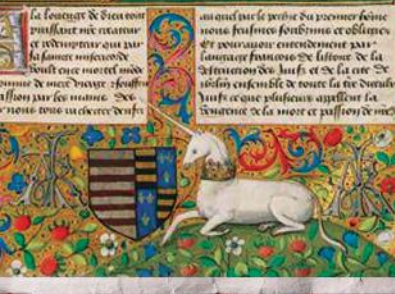 la louenge de dieu tout
puissant nre createur
et redempteur qui par
sa saincte misericorde
mortel
de mere vierge souffrir
passion par les mains des
nous tous racheter denfer
au quel par le pechie du premier home
nous feusmes forbannis et obligies
Et pour auoir entendement par
langaige francois de listore de la
destruction des Juifs et de la cite de
ensemble de toute la vie
Juifs et que plusieurs appellent la
vengence de la mort et passion de nre